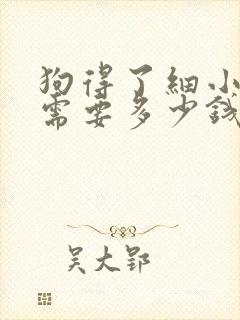 狗得了细小
需要多少钱
吴大郢